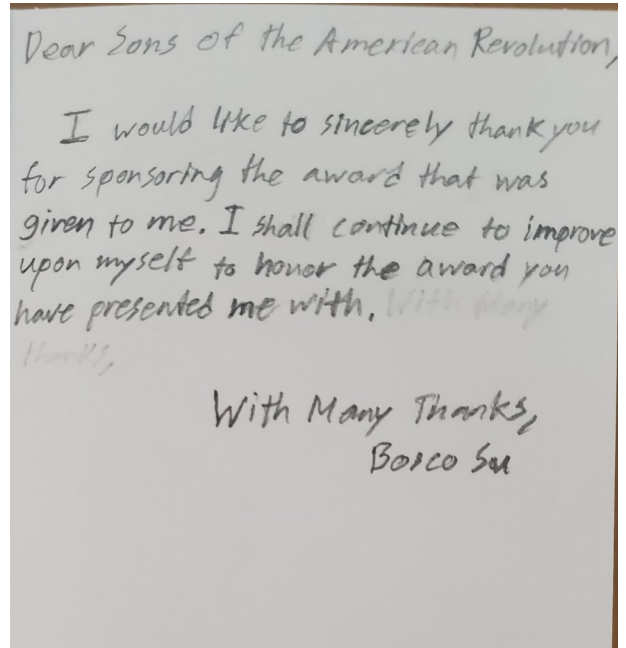 Dear Sons of the American Revolution,
I would like to sincerely thank you
for sponsoring the award that was
given to me. I shall continue to improve
upon myself to honor the award you
have presented me with. With Many
thanks,
With Many Thanks,
Bosco Su